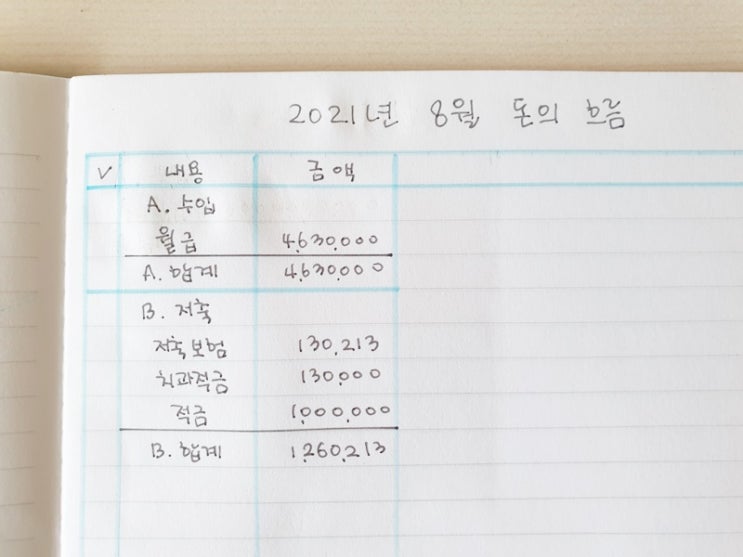 2021년 8월 돈의 흐름
V 내용 금액
A. 수입
월급 4,630,000
A. 합계 4,630,000
B. 저축
저축보험 130,213
치과적금 130,000
적금 1,000,000
B. 합계 1,260,213